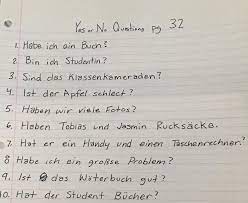 Yes or No Questions pg 32
1. Habe ich ein Buch?
2. Bin ich Studentin?
3. Sind das Klassenkameraden?
4. Ist der Apfel schlect?
5. Haben wir viele Fotos?
6. Haben Tobias und Jasmin Rucksäcke.
7. Hat er ein Handy und einen Taschenrechner?
8 Habe ich ein großse Problem?
9. Ist das Wörterbuch gut?
10. Hat der Student Bücher?